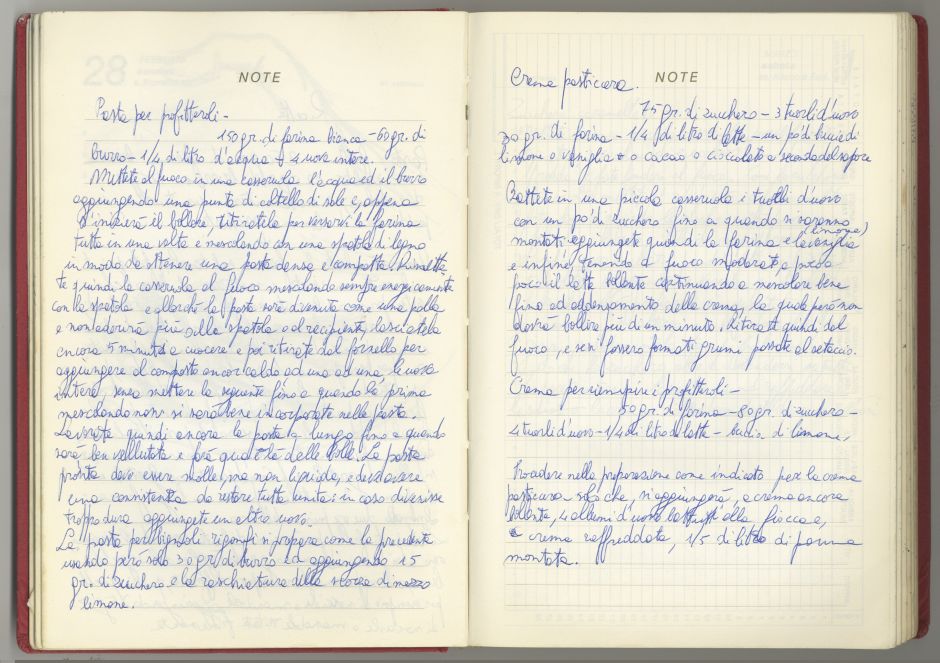 28
NOTE
Pasta per profitteroli -
150 gr. di farina bianca - 60 gr. di
burro - 1/4 di litro d'acqua + 4 uova intere.
Mettete al fuoco in una casseruola l'acqua ed il burro
aggiungendo una punta di coltello di sale e, appena
inizierà il bollore, ritiratela per versarvi la farina
tutta in una volta e mescolando con una spatola di legno
in modo da ottenere una pasta densa e compatta. Rimette
te quindi la casseruola al fuoco mescolando sempre energicamente
con la spatola e allorchè la pasta sarà divenuta come una palla
e non aderirà più alla spatola o al recipiente, lasciatela
ancora 5 minuti a cuocere e poi ritirate dal fornello per
aggiungere al composto ancor caldo ad uno ad uno le uova
intere, senza mettere la seguente fino a quando la prima
mescolando non si sarà bene incorporata nella pasta.
Lavorate quindi ancora la pasta a lungo fino a quando
sarà ben vellutata e farà qualche bolla. La pasta
pronta deve essere molle, ma non liquida, e deve avere
una consistenza da restare tutta unita: in caso divenisse
troppo dura aggiungete un altro uovo.
La pasta per bignoli rigonfi si prepara come la precedente
usando però solo 30 gr di burro ed aggiungendo 15
gr. di zucchero e la raschiatura della scorza di mezzo
limone.
NOTE
Crema pasticcera.
75 gr. di zucchero - 3 tuorli d'uovo
30 gr. di farina - 1/4 di litro di latte - un po' di buccia di
limone o vaniglia o cacao o cioccolato a seconda del sapore
Battete in una piccola casseruola i tuorli d'uovo
con un po' di zucchero fino a quando si saranno
(limone)
montati aggiungete quindi la farina e la vaniglia
e infine, tenendo a fuoco moderato, a poco a
poco il latte bollente continuando a mescolare bene
fino ad addensamento della crema, la quale però non
dovrà bollire più di un minuto. Ritirate quindi dal
fuoco, e se si fossero formati grumi passate al setaccio.
Crema per riempire i profitteroli -
50 gr. di farina - 80 gr. di zucchero -
4 tuorli d'uovo - 1/4 di litro di latte - buccia di limone,
Procedere nella preparazione come indicato per la crema
pasticcera solo che, si aggiungerà, a crema ancora
bollente, 4 albumi d'uovo battuti alla fiocca e,
a crema raffreddata, 1/5 di litro di panna
montata.